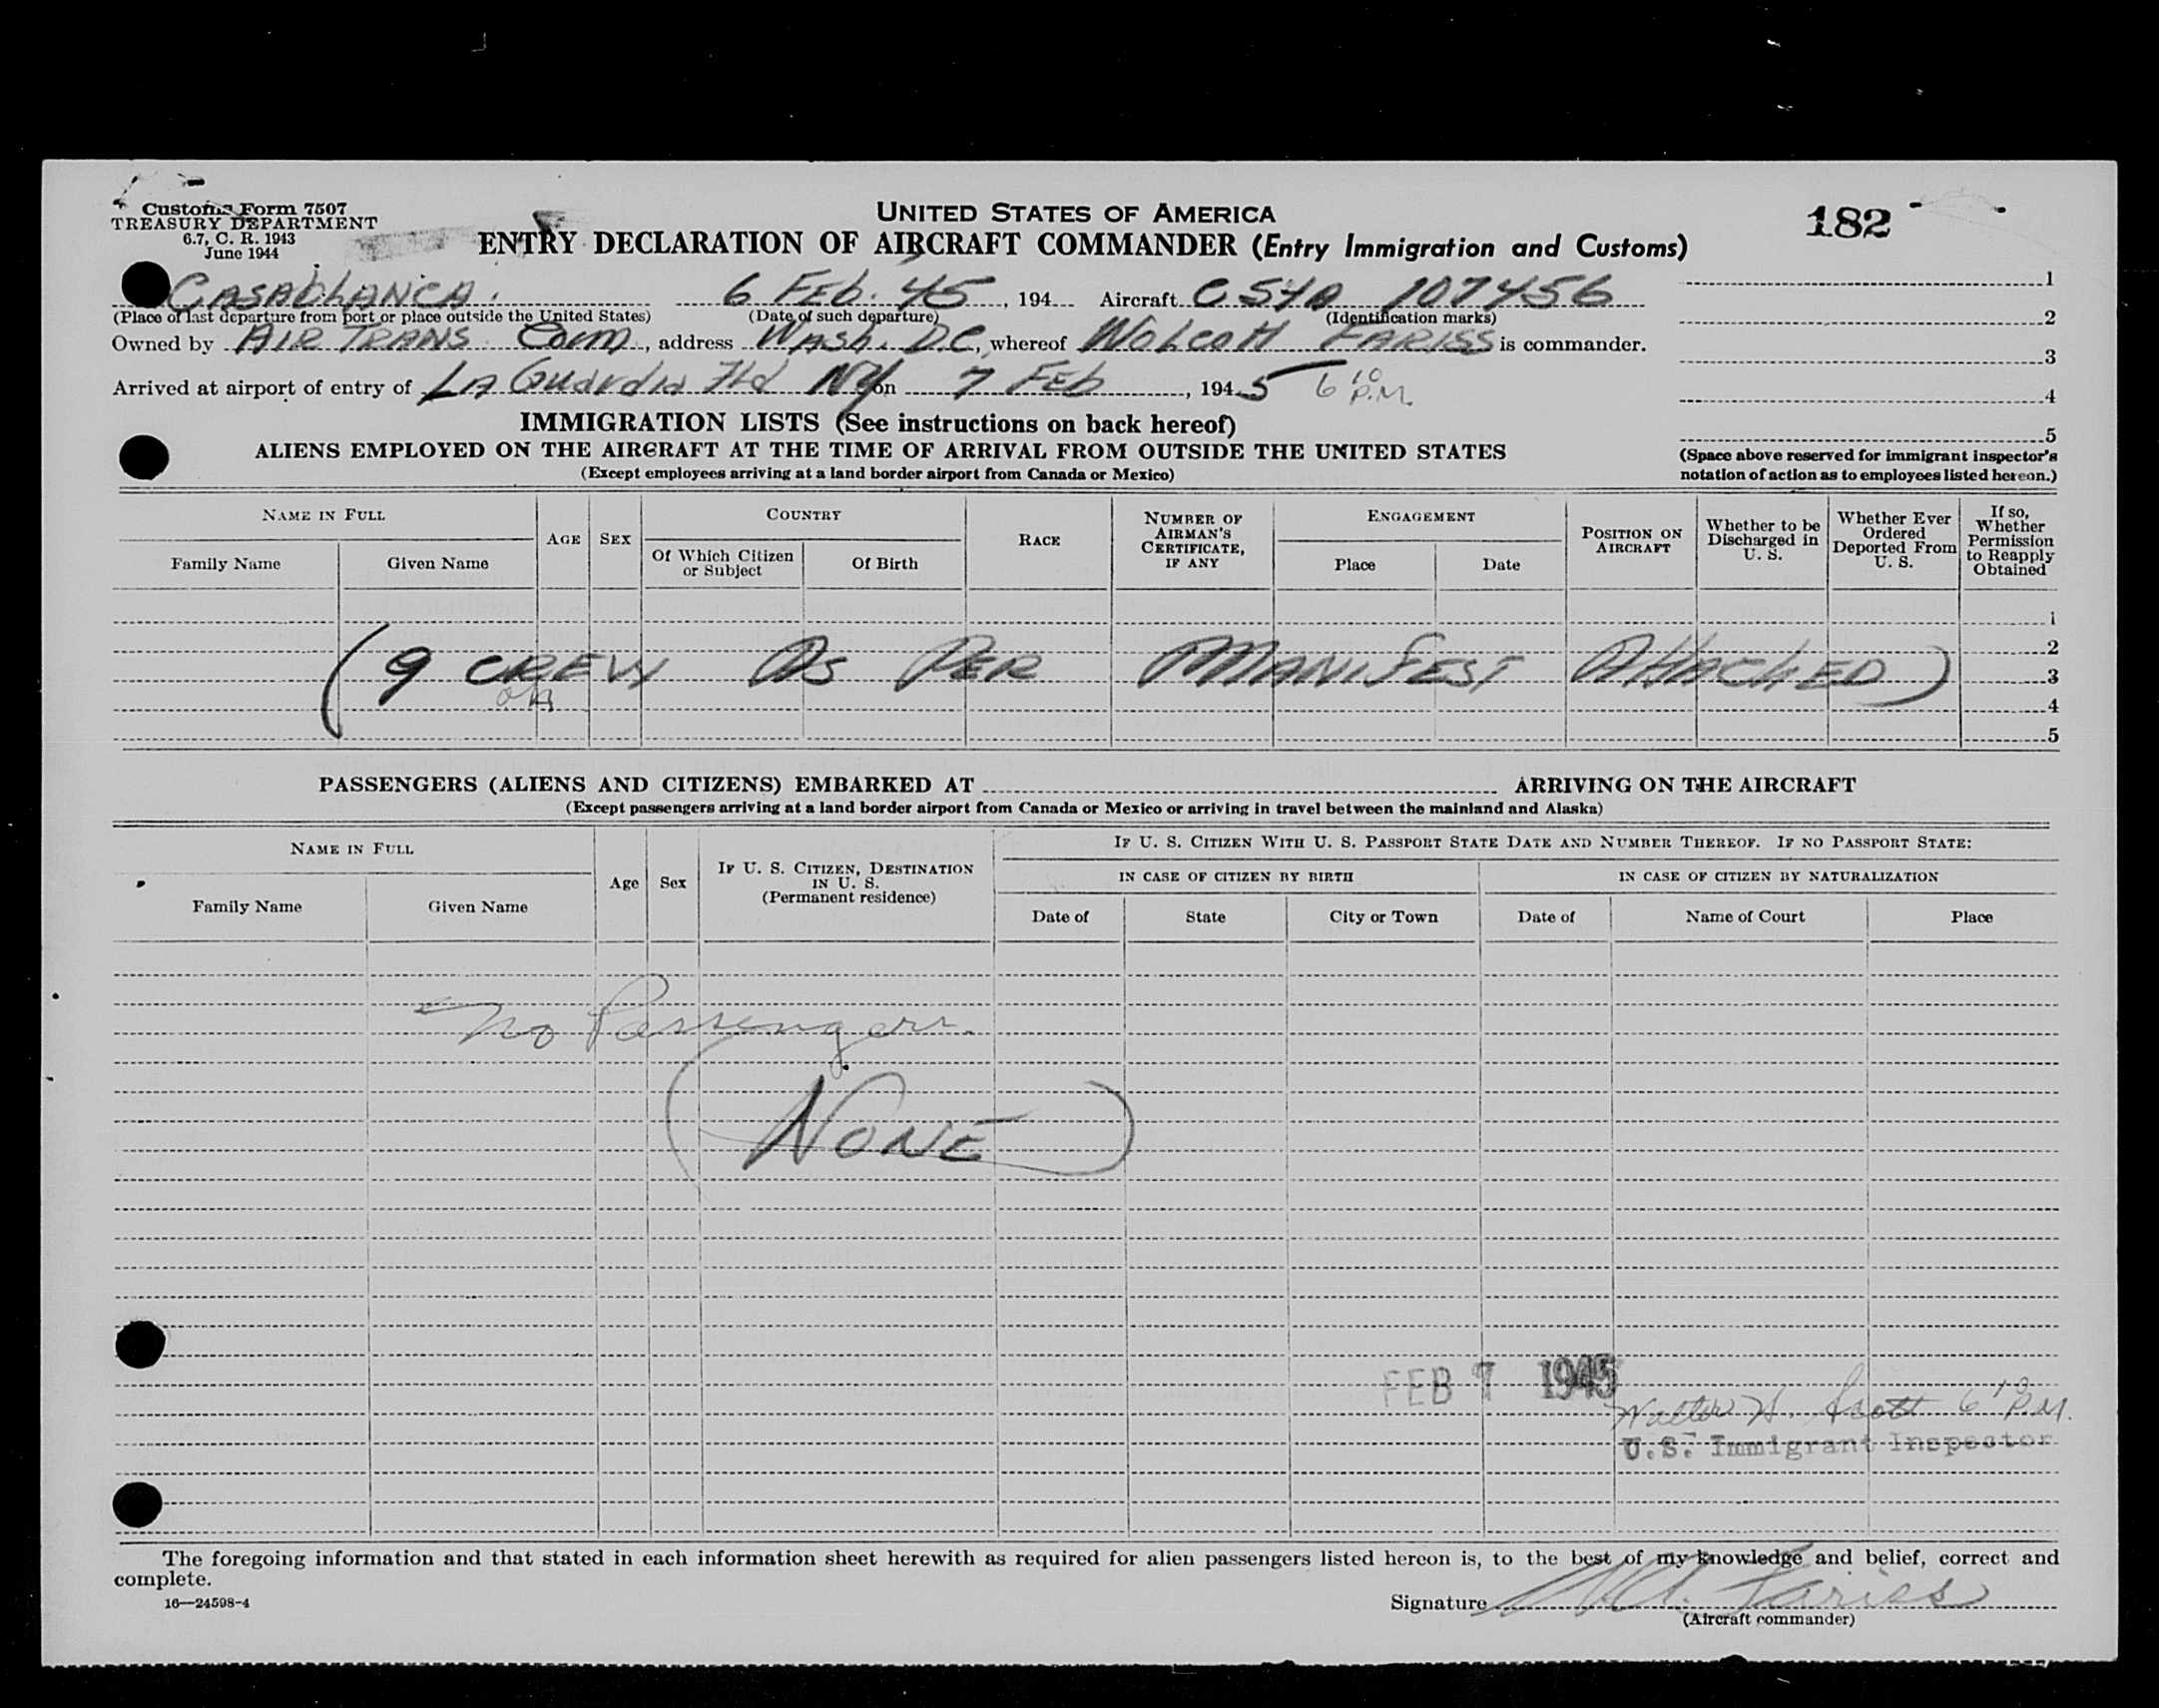 Customs Form 7507
TREASURY DEPARTMENT
6.7, C. R. 1943
June 1944
UNITED STATES OF AMERICA
ENTRY DECLARATION OF AIRCRAFT COMMANDER (Entry Immigration and Customs)
182
CASAblANCA. 6 FEb. 45, 194 Aircraft C 54A 107456
(Place of last departure from port or place outside the United States) (Date of such departure) (Identification marks)
Owned by AIR TRANS Com, address WAsh. D.C, whereof WolcoTT FARISS is commander.
Arrived at airport of entry of LA GuArdiA Fld NY on 7 FEb, 1945 6 10 P.M.
1
2
3
4
5
(Space above reserved for immigrant inspector's
notation of action as to employees listed hereon.)
IMMIGRATION LISTS (See instructions on back hereof)
ALIENS EMPLOYED ON THE AIRCRAFT AT THE TIME OF ARRIVAL FROM OUTSIDE THE UNITED STATES
(Except employees arriving at a land border airport from Canada or Mexico)
NAME IN FULL
Family Name
Given Name
AGE
SEX
COUNTRY
Of Which Citizen
or Subject
Of Birth
RACE
NUMBER OF
AIRMAN'S
CERTIFICATE,
IF ANY
ENGAGEMENT
Place
Date
POSITION ON
AIRCRAFT
Whether to be
Discharged in
U. S.
Whether Ever
Ordered
Deported From
U. S.
If so,
Whether
Permission
to Reapply
Obtained
1
2
(9 CREW As PER MANIFEST ATTACHED) 3
4
5
PASSENGERS (ALIENS AND CITIZENS) EMBARKED AT ARRIVING ON THE AIRCRAFT
(Except passengers arriving at a land border airport from Canada or Mexico or arriving in travel between the mainland and Alaska)
NAME IN FULL
Family Name
Given Name
Age
Sex
IF U. S. CITIZEN, DESTINATION
IN U. S.
(Permanent residence)
IF U. S. CITIZEN WITH U. S. PASSPORT STATE DATE AND NUMBER THEREOF. IF NO PASSPORT STATE:
IN CASE OF CITIZEN BY BIRTH
Date of
State
City or Town
IN CASE OF CITIZEN BY NATURALIZATION
Date of
Name of Court
Place
No Passengers.
(NONE)
FEB 7 1945
Walter H. Scott 6 10 P.M.
U.S. Immigrant Inspector
The foregoing information and that stated in each information sheet herewith as required for alien passengers listed hereon is, to the best of my knowledge and belief, correct and
complete.
16—24598-4
Signature W.A. Fariss
(Aircraft commander)